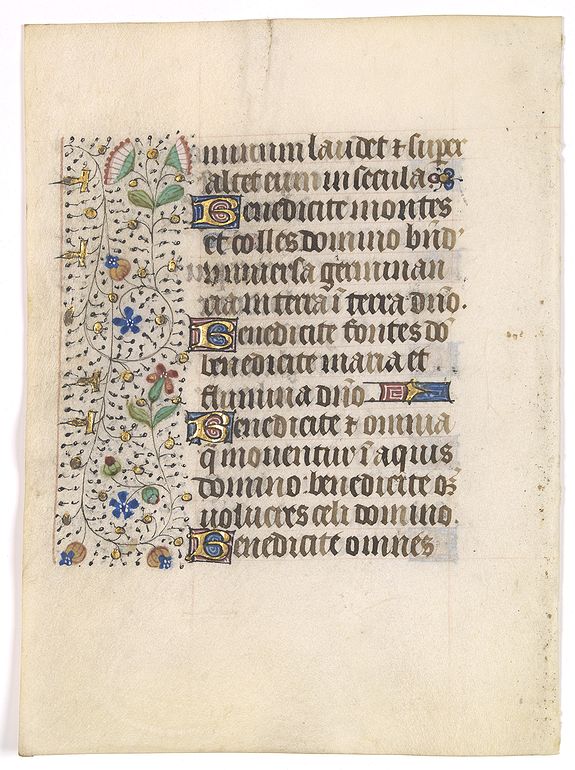 minum laudet et super
altet eum in secula
Benedicite montes
et colles domino bnd'
universa germinan
cia in terra i terra dño.
Benedicite fontes do
benedicite maria et
flumina dño
Benedicite et omnia
q moventur i aquis
domino benedicite oẽs
volucres celi domino.
Benedicite omnes